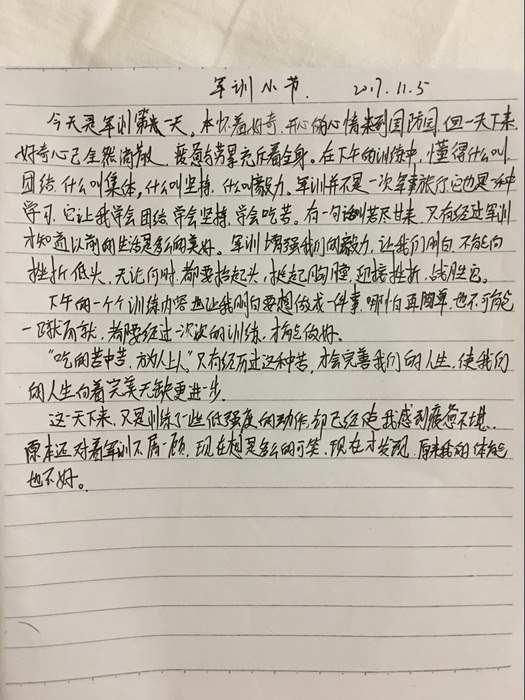 军训小节 2017.11.5
今天是军训第一天，本怀着好奇、开心的心情来到国防园，但一天下来
好奇心已全然消散，疲惫与劳累充斥着全身。在下午的训练中，懂得什么叫
团结，什么叫集体，什么叫坚持，什么叫毅力。军训并不是一次军事旅行，它也是一种
学习，它让我学会团结，学会坚持，学会吃苦。有一句话叫苦尽甘来，只有经过军训
才知道以前的生活是多么的美好。军训增强我们的毅力，让我们明白不能向
挫折低头，无论何时，都要抬起头，挺起胸膛，迎接挫折，战胜它。
下午的一个个训练内容也让我明白要想做成一件事，哪怕再简单，也不可能
一蹴而就，都要经过一次次的训练，才能做好。
“吃的苦中苦，方为人上人”只有经历过这种苦，才会完善我们的人生，使我们
的人生向着完美无缺更进一步。
这一天下来，只是训练了一些低强度的动作，却已经使我感到疲惫不堪，
原本还对着军训不屑一顾，现在想是多么的可笑，现在才发现，原来我的体能
也不好。